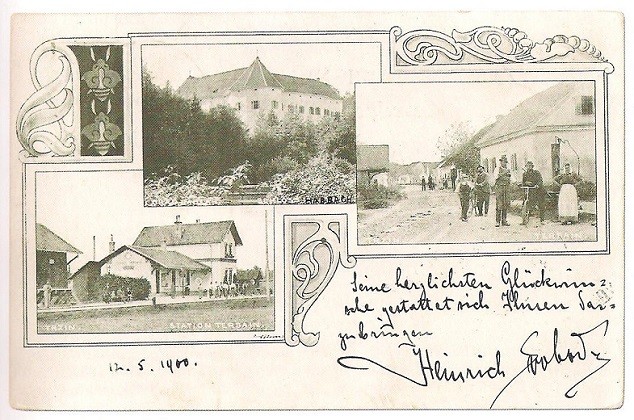 HABBACH
TRZIN.
STATION TERSAIN.
Seine herzlichsten Glückwün-
sche gestattet sich Ihnen dar-
zubringen
Heinrich Svoboda
12. 5. 1900.